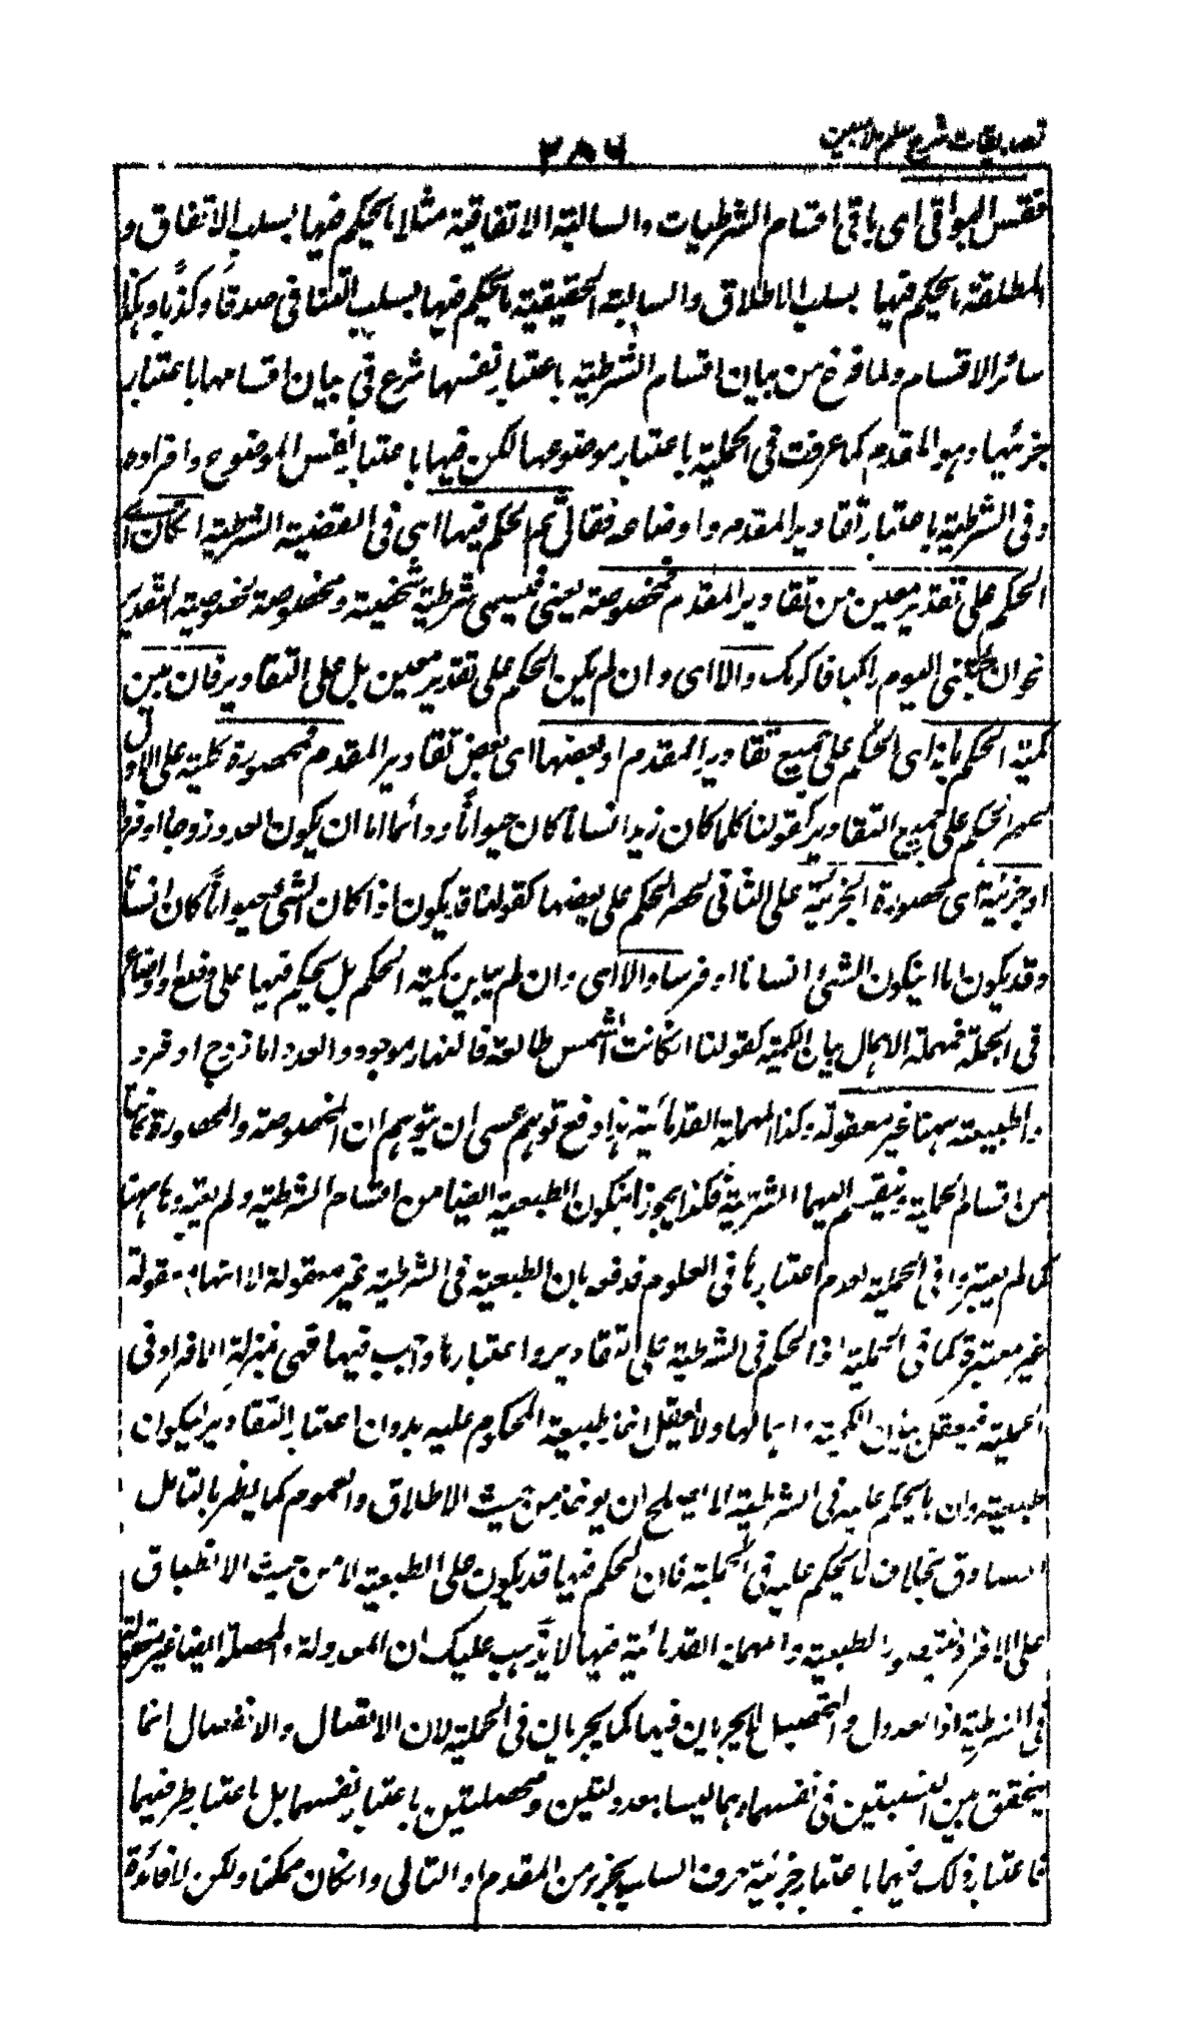 تصديقات شرح سلم ملا مبين
٣٨٦
فقس البواقى اى باقى اقسام الشرطيات والسالبة الاتفاقية مثلا ما يحكم فيها بسلب الاتفاق و
المطلقة ما يحكم فيها بسلب الاطلاق والسالبة الحقيقية ما يحكم فيها بسلب التنافى صدقاً وكذباً وهكذا
سائر الاقسام ولما فرغ من بيان اقسام الشرطية باعتبار نفسها شرع فى بيان اقسامها باعتبار
جزئيها وهو المقدم كما عرفت فى الحملية باعتبار موضوعها لكن فيها باعتبار نفس الموضوع وافراده
وفى الشرطية باعتبار تقادير المقدم واوضاعه فقال ثم الحكم فيها اى فى القضية الشرطية ان كان اى
الحكم على تقدير معين من تقادير المقدم فمخصوصة يعنى فيسمى شرطية شخصية ومخصوصة لخصوصية التقدير
نحو ان جئتنى اليوم راكبا فاكرمك والا اى وان لم يكن الحكم على تقدير معين بل على التقادير فان بين
كمية الحكم بانه اى الحكم على جميع تقادير المقدم او بعضها اى بعض تقادير المقدم فمحصورة كلية على الاول
لحصر الحكم على جميع التقادير كقولنا كلما كان زيد انسانا كان حيواناً ودائما اما ان يكون العدد زوجا او فردا
او جزئية اى محصورة الجزئية على الثانى لحصر الحكم على بعضها كقولنا قد يكون اذا كان الشئ حيواناً كان انسانا
وقد يكون اما ان يكون الشئ انسانا او فرسا والا اى وان لم يبين كمية الحكم بل يحكم فيها على وضع او اوضاع
فى الجملة فمهملة لاهمال بيان الكمية كقولنا ان كانت الشمس طالعة فالنهار موجود والعدد اما زوج او فرد
والطبيعية ههنا غير معقولة وكذا المهملة القدمائية هذا دفع توهم عسى ان يتوهم ان المخصوصة والمحصورة كما انها
من اقسام الحملية وينقسم اليهما الشرطية فكذا يجوز ان يكون الطبعية ايضا من اقسام الشرطية ولم يعتبروها ههنا
كما لم يعتبروا فى الحملية لعدم اعتبارها فى العلوم فدفعه بان الطبعية فى الشرطية غير معقولة لا انها معقولة
غير معتبرة كما فى الحملية اذ الحكم فى الشرطية على التقادير واعتبارها واجب فيها فهى بمنزلة الافراد فى
الحملية فيعقل بيان الكمية واهمالها ولا يعقل اخذ طبيعة المحكوم عليه بدون اعتبار التقادير ليكون
طبيعية وان ما يحكم عليه فى الشرطية لا يصلح ان يوخذ من حيث الاطلاق والعموم كما يظهر بالتامل
الصادق بخلاف ما يحكم عليه فى الحملية فان الحكم فيها قد يكون على الطبعية لا من حيث الانطباق
على الافراد فيتصور الطبعية والمهملة القدمائية فيها لا يذهب عليك ان المعدولة والمحصلة ايضا غير معقولة
فى الشرطية اذ العدول والتحصيل لا يجريان فيها كما يجريان فى الحملية لان الاتصال والانفصال انما
يتحقق بين النسبتين فى نفسهما وهما ليسا بعدوليتين ومحصلتين باعتبار نفسهما بل باعتبار طرفيهما
فاعتبار ذلك فيهما باعتبار جزئية حرف السلب بجزء من المقدم او التالى وان كان ممكنا ولكن لا فائدة